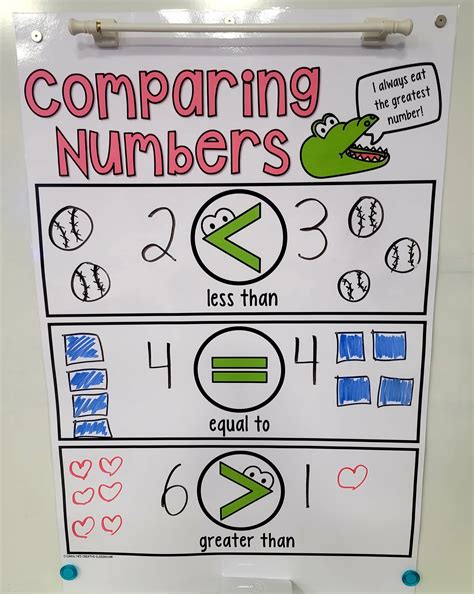 Comparing
Numbers
I always eat
the greatest
number!
2 < 3
less than
4 = 4
equal to
6 > 1
greater than